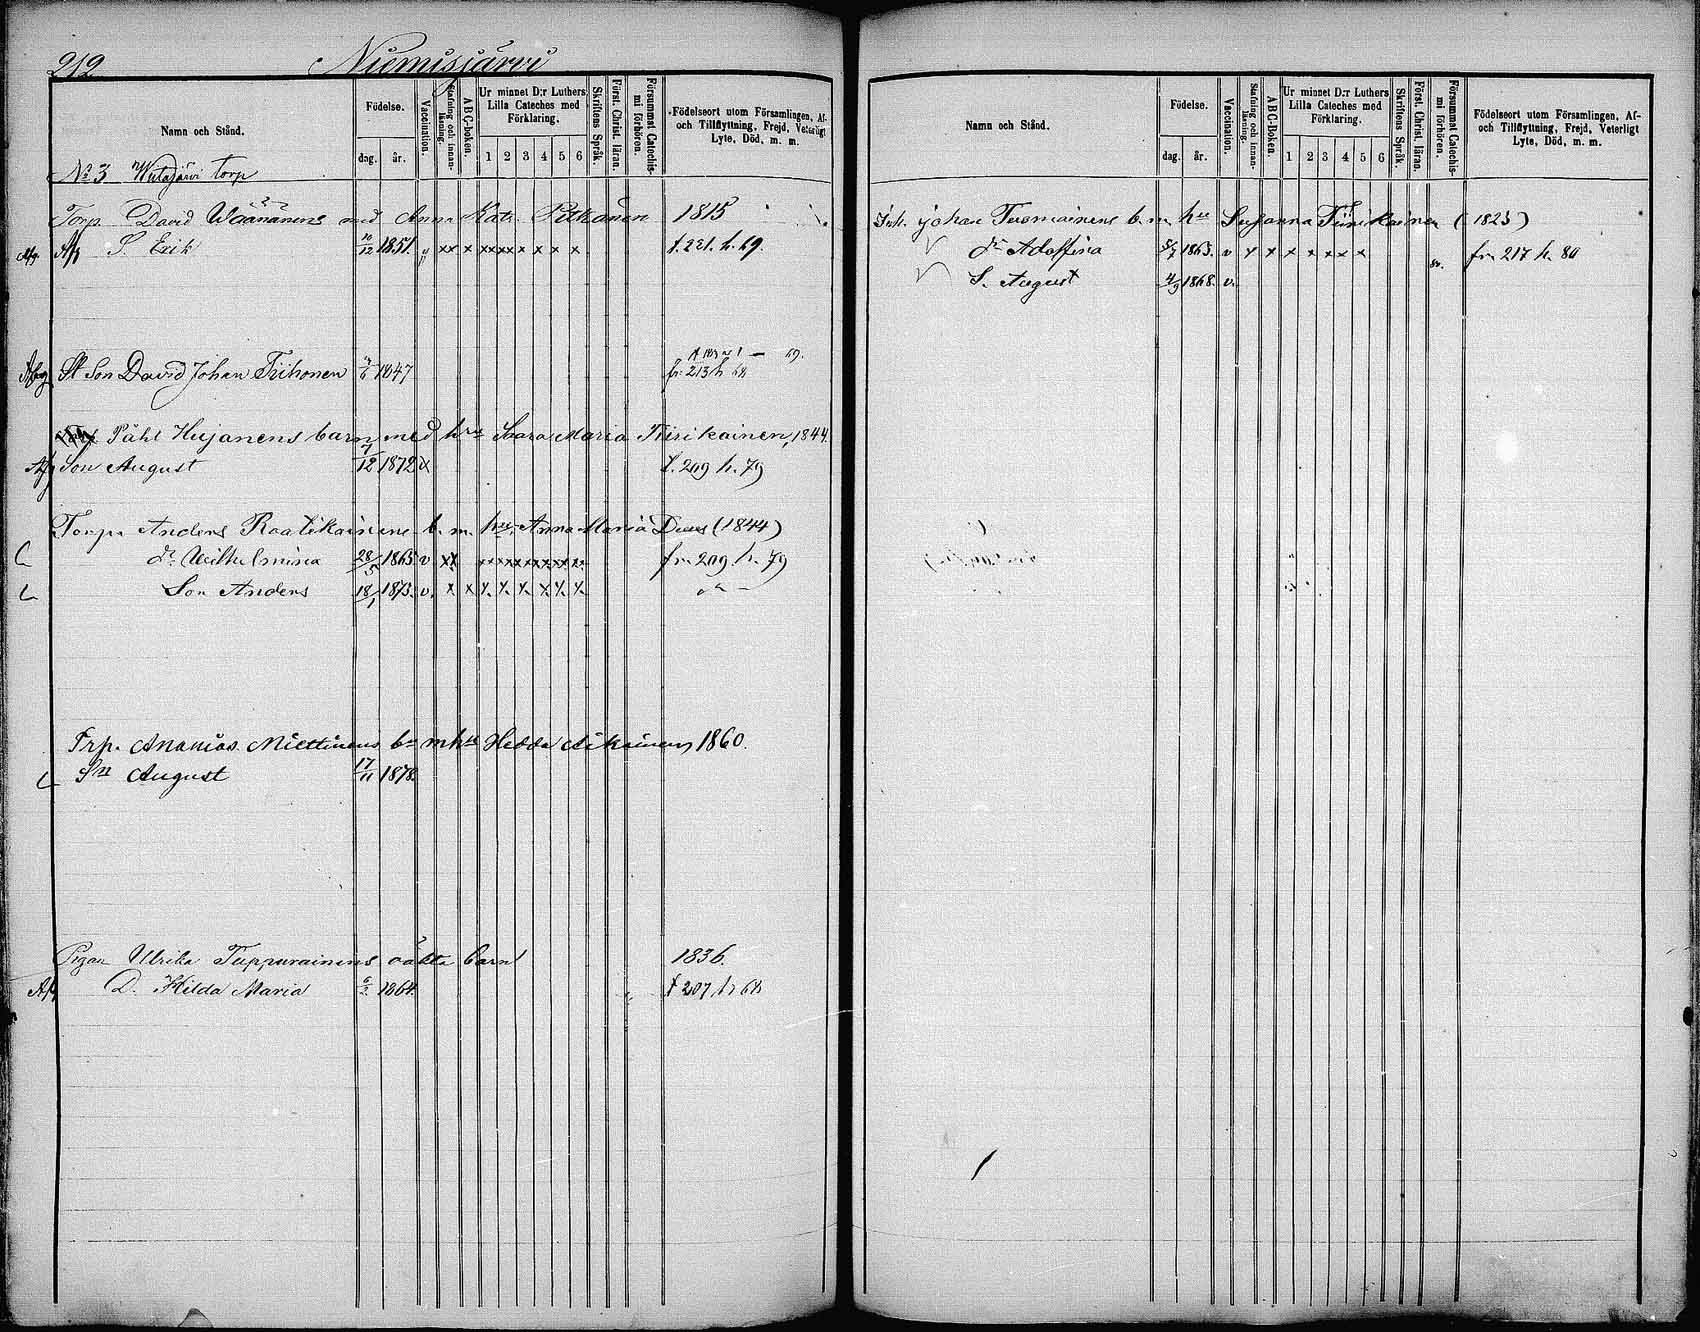 212 Niemisjärvi
Namn och Stånd.
Födelse.
dag. år.
Vaccination.
Stafning och innanläsning.
ABC-boken.
Ur minnet D:r Luthers Lilla Cateches med Förklaring.
1 2 3 4 5 6
Skriftens Språk.
Först. Christ. läran.
Försummat Catechismi förhören.
Födelseort utom Församlingen, Af- och Tillflyttning, Frejd, Veterligt Lyte, Död, m. m.
No 3 torp
Torp. David Wäänänens med Anna Kath. Pitkänen 1815
Afg Afg S. Erik 12 1851 xx x xxxx x x x x f. 221. h. 69.
69.
Afg St Son David Johan Tiihonen 6 1847 fr. 213 h 68
Påhl Hujanens barn med hru Sara Maria Kirikainen, 1844.
Afg Son August 7/12 1872 f. 209 h. 79
Torp. Anders Raatikainens b. m. hru Anna Maria (1844)
dr Wilhelmina 28/5 1863 v xx xxxxxxxxxx fr. 209 h. 79
Son Anders 18/1 1873. v. x x x x x x x x
Trp. Ananias Miettinens bn m hru Hedda Aikainen, 1860.
Sn August 17/11 1878.
Pigan Ulrika Tuppurainens oäkta barn 1836.
Afg D. Hilda Maria 6/2 1864. f 207 h 68
Namn och Stånd.
Födelse.
dag. år.
Vaccination.
Stafning och innanläsning.
ABC-Boken.
Ur minnet D:r Luthers Lilla Cateches med Förklaring.
1 2 3 4 5 6
Skriftens Språk.
Först. Christ. läran.
Försummat Catechismi förhören.
Födelseort utom Församlingen, Af- och Tillflyttning, Frejd, Veterligt Lyte, Död, m. m.
Inh. Johan Tuomainens b. m. hru Susanna (1825)
dr Adolfina 1863. v x x x x x x x 80. fr. 217 h. 80
S. August 4/9 1868. v.